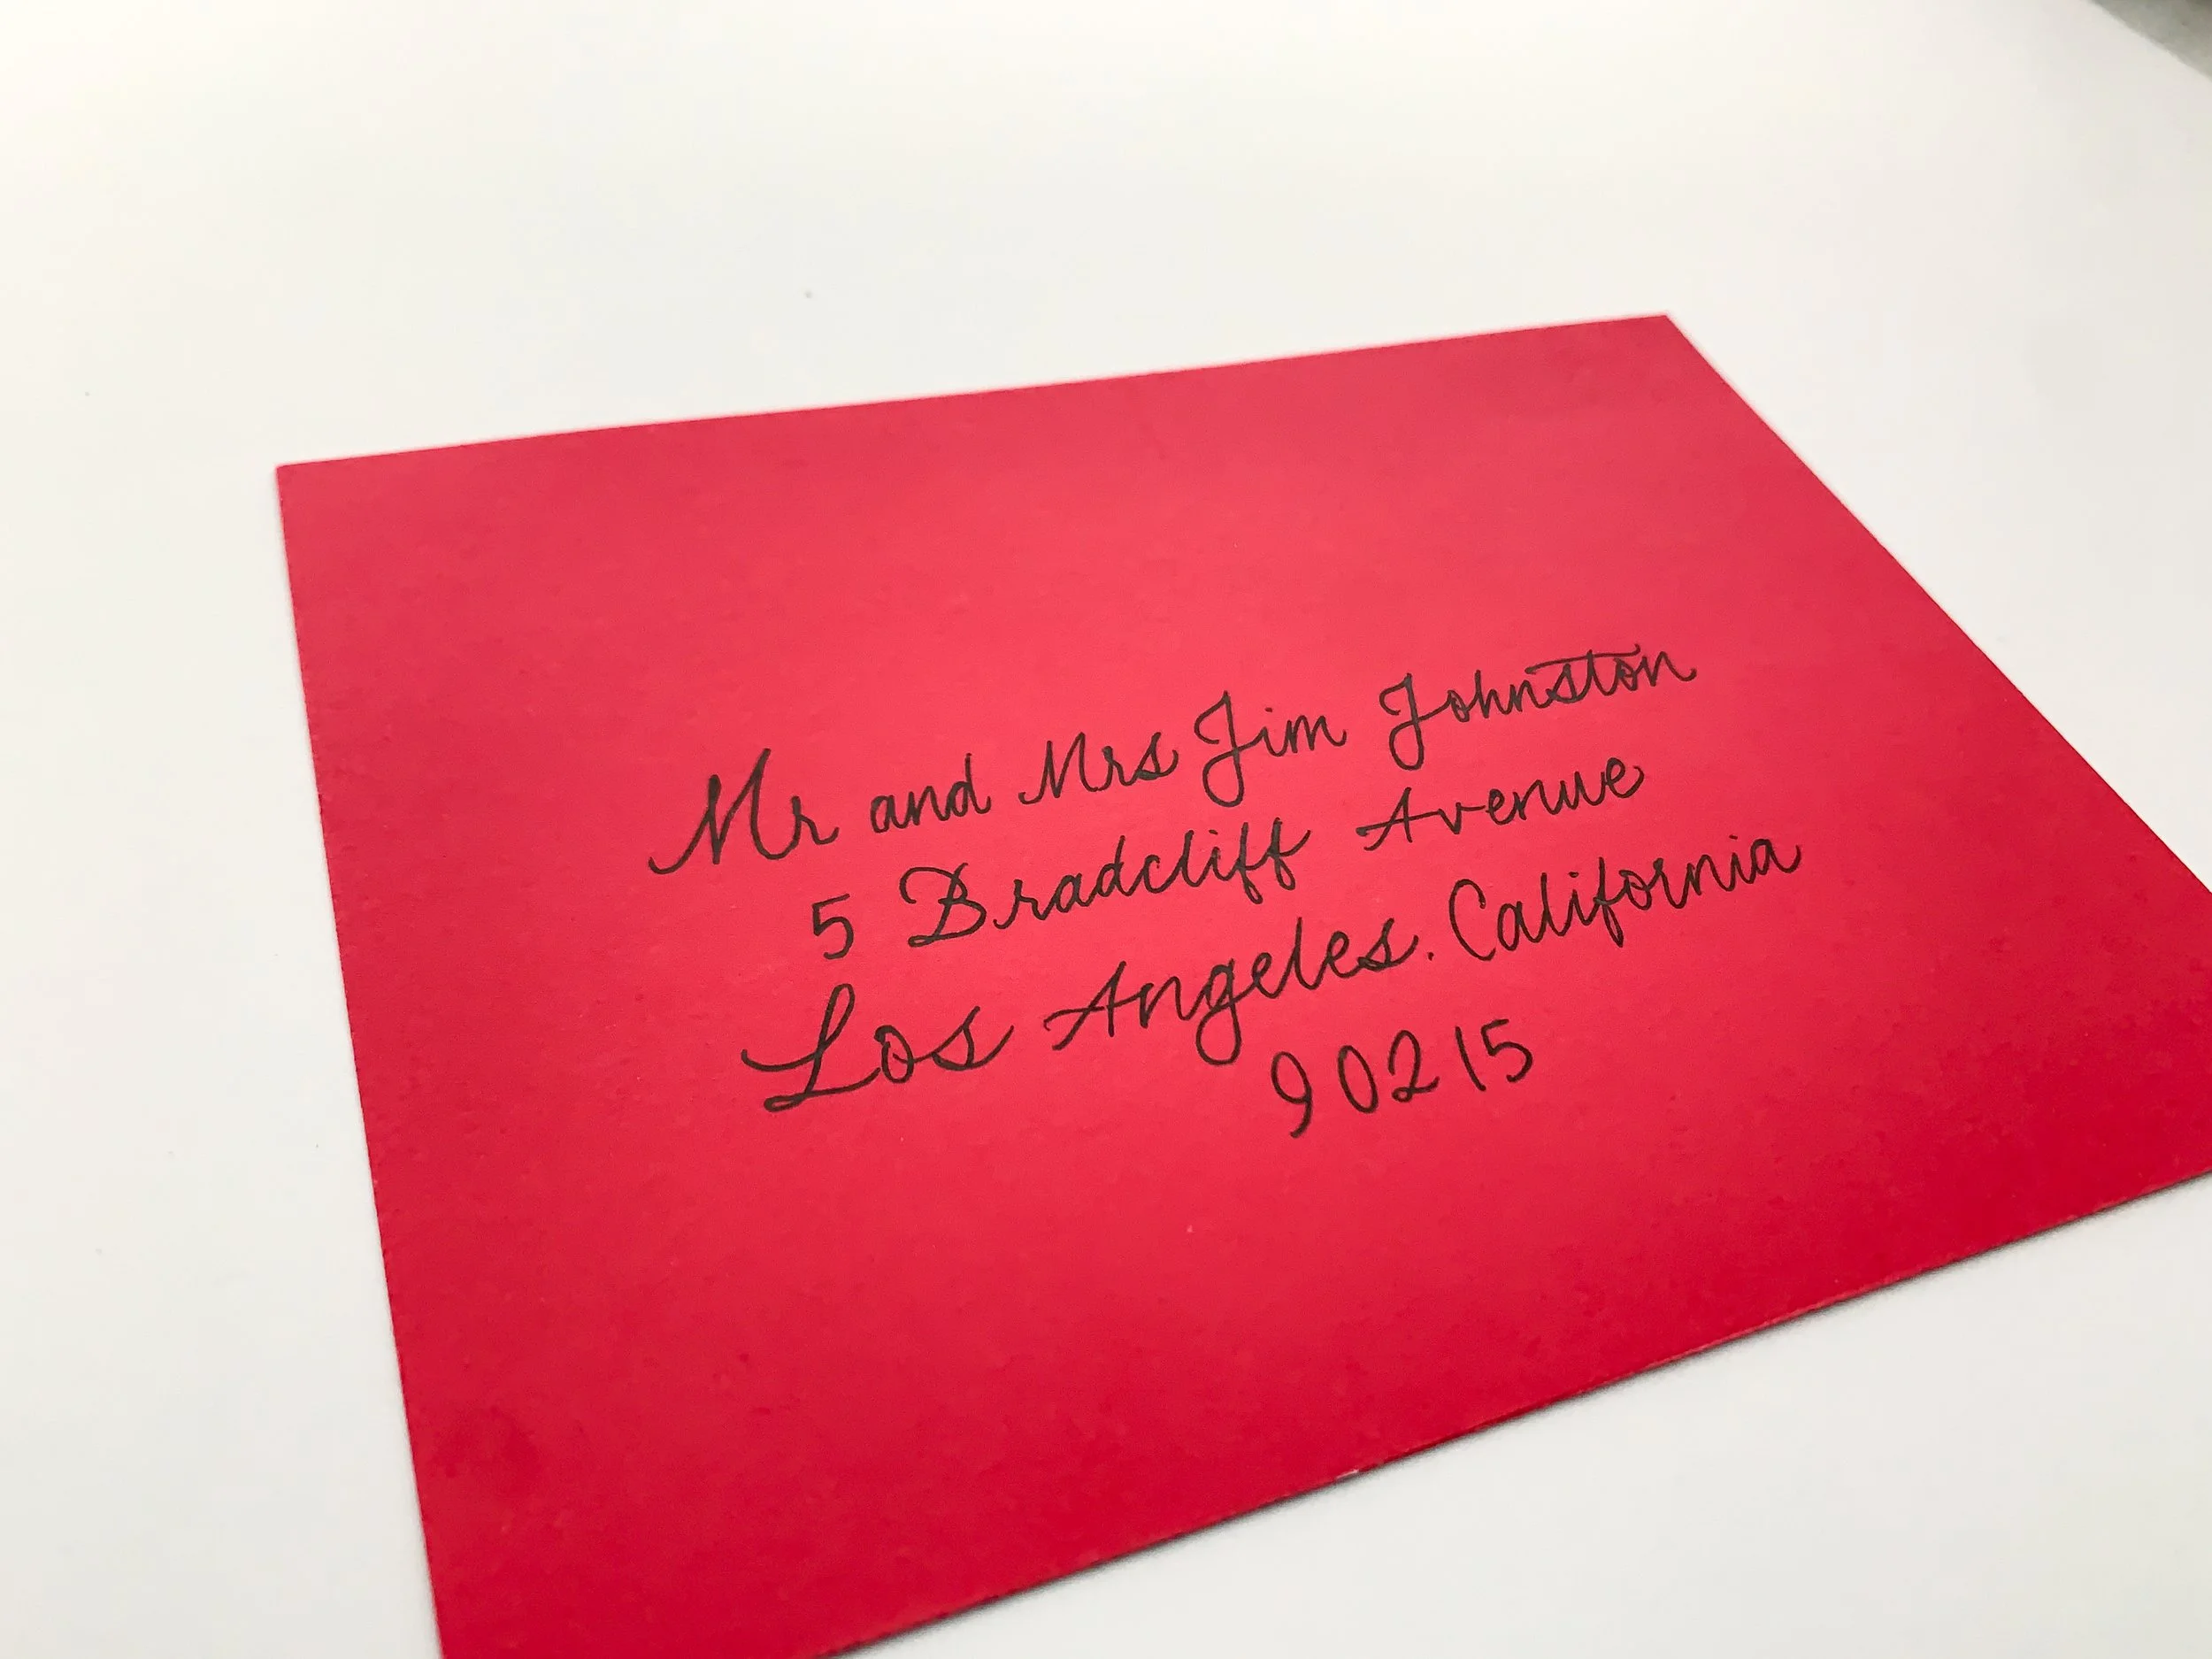 Mr and Mrs Jim Johnston
5 Bradcliff Avenue
Los Angeles. California
90215